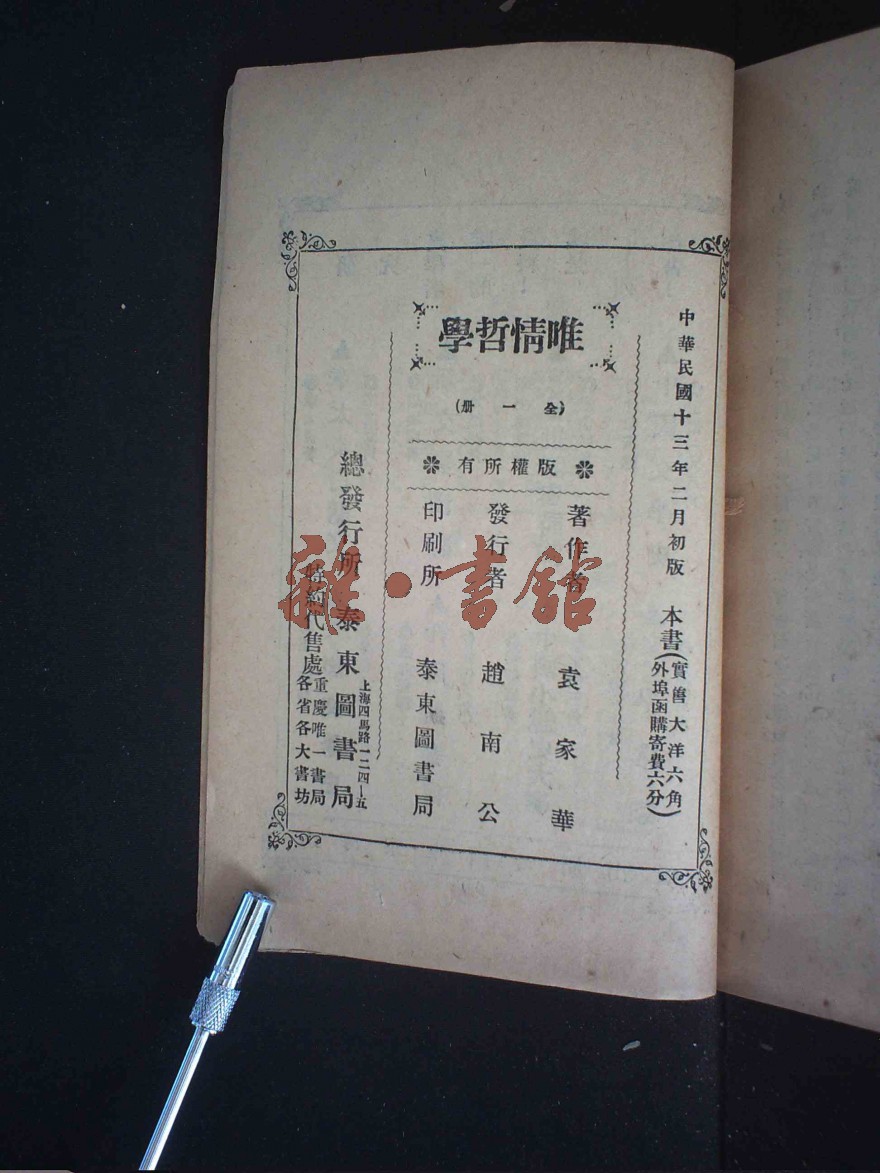 中華民國十三年二月初版
本書(實售大洋六角
外埠函購寄費六分)
唯情哲學
(全一册)
版權所有
著作者 袁家華
發行者 趙南公
印刷所 泰東圖書局
總發行所 泰東圖書局
上海四馬路一二四—五
特約代售處
重慶唯一書局
各省各大書坊
雜·書館